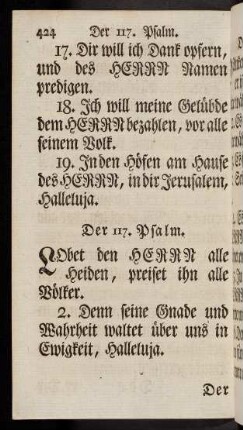 424 Der 117. Psalm.
17. Dir will ich Dank opfern,
und des HERRN Namen
predigen.
18. Ich will meine Gelübde
dem HERRN bezahlen, vor alle
seinem Volk.
19. In den Höfen am Hause
des HERRN, in dir Jerusalem,
Halleluja.
Der 117. Psalm.
LObet den HERRN alle
Heiden, preiset ihn alle
Völker.
2. Denn seine Gnade und
Wahrheit waltet über uns in
Ewigkeit, Halleluja.
Der